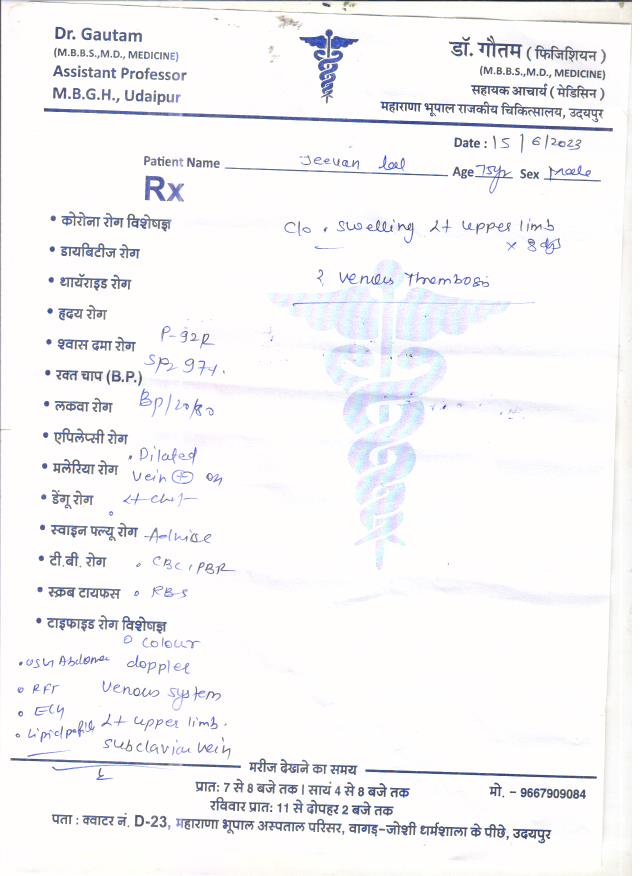 Dr. Gautam
(M.B.B.S.,M.D., MEDICINE)
Assistant Professor
M.B.G.H., Udaipur
डॉ. गौतम ( फिजिशियन )
(M.B.B.S.,M.D., MEDICINE)
सहायक आचार्य ( मेडिसिन )
महाराणा भूपाल राजकीय चिकित्सालय, उदयपुर
Date : 15 / 6/2023
Patient Name Jeevan lal Age 75yr Sex Male
Rx
• कोरोना रोग विशेषज्ञ
C/o . swelling Lt upper limb
• डायबिटीज रोग
• थायॅराइड रोग
? venous Thrombosis
• हृदय रोग
P-92R
• श्वास दमा रोग
SPO2 97%.
• रक्त चाप (B.P.)
BP/120/80
• लकवा रोग
• एपिलेप्सी रोग
. Dilated
• मलेरिया रोग vein (+) on
• डेंगू रोग Lt chest
• स्वाइन फ्ल्यू रोग Advise
• टी.बी. रोग . CBC, PBR
• स्क्रब टायफस . RBS
• टाइफाइड रोग विशेषज्ञ
Colour
. USG Abdomen doppler
RFT venous system
ECG
Lipid profile Lt upper limb.
subclavian vein
मरीज देखाने का समय
प्रात: 7 से 8 बजे तक। सायं 4 से 8 बजे तक
मो. – 9667909084
रविवार प्रात: 11 से दोपहर 2 बजे तक
पता : क्वाटर नं. D-23, महाराणा भूपाल अस्पताल परिसर, वागड़-जोशी धर्मशाला के पीछे, उदयपुर